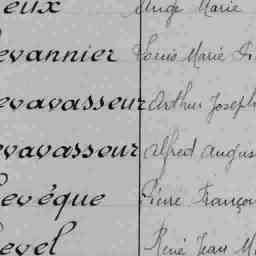 eux Ange Marie
evannier Louis Marie
evavasseur Arthur Joseph
evavasseur Alfred Augus
evêque Pierre Françoi
evel René Jean M